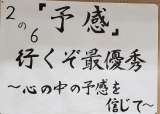 2の6
『予感』
行くぞ最優秀
～心の中の予感を
信じて～